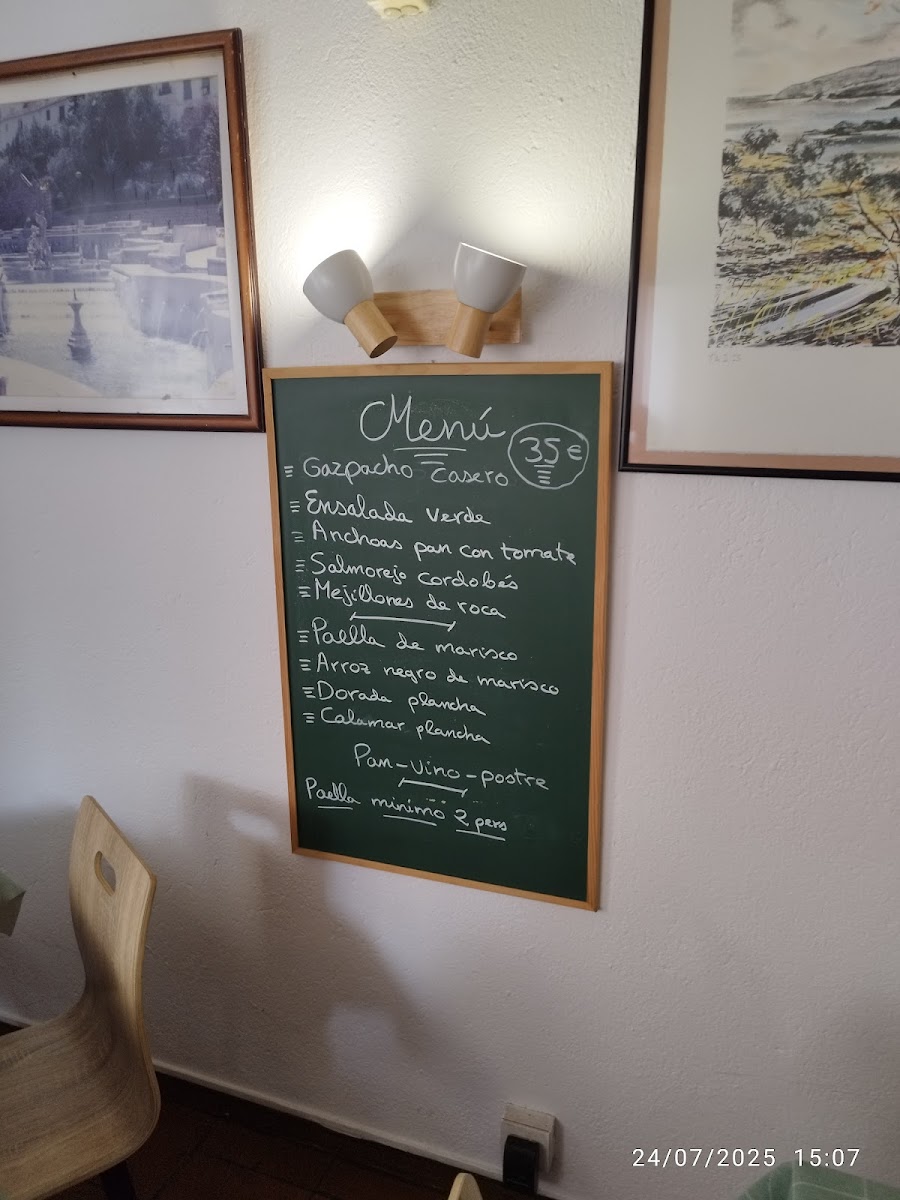 Menú
35€
Gazpacho casero
Ensalada verde
Anchoas pan con tomate
Salmorejo cordobés
Mejillones de roca
Paella de marisco
Arroz negro de marisco
Dorada plancha
Calamar plancha
Pan-vino-postre
Paella minimo 2 pers
24/07/2025 15:07